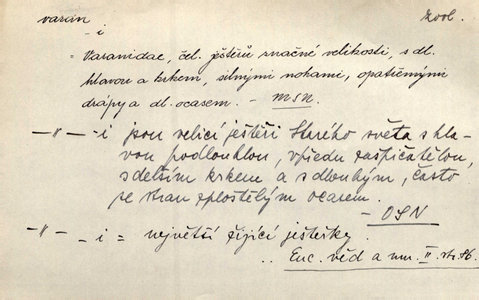 varan zool.
- i
= Varanidae, čel. ještěrů značné velikosti, s dl.
hlavou a krkem, silnými nohami, opatřenými
drápy a dl. ocasem. - MSN.
—"— -i jsou velicí ještěři Starého světa s hla-
vou podlouhlou, vpředu zašpičatělou,
s delším krkem a s dlouhým, často
se stran zploštělým ocasem.
- OSN
—"— - i = největší žijící ještěrky.
.. Enc. věd a um. II. str. 86.